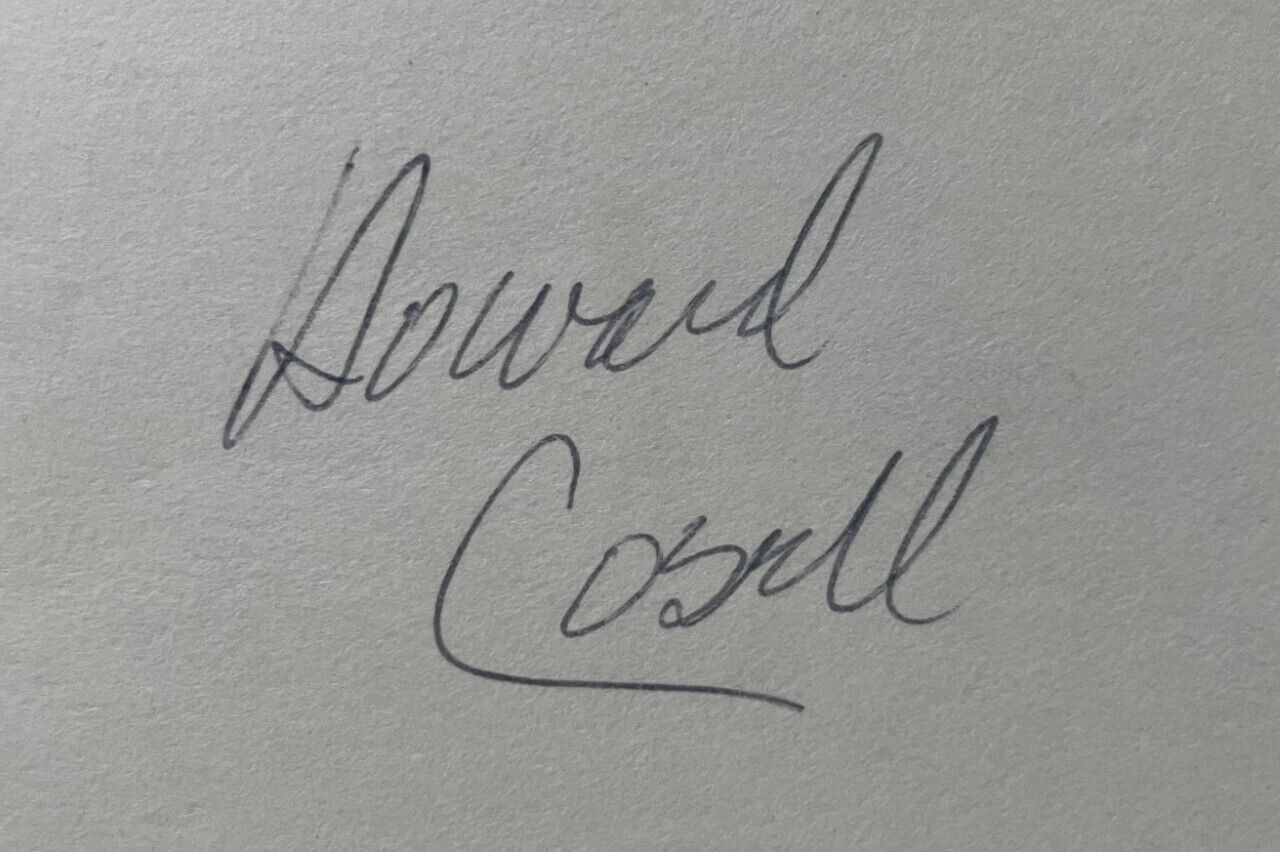 Howard
Cosell